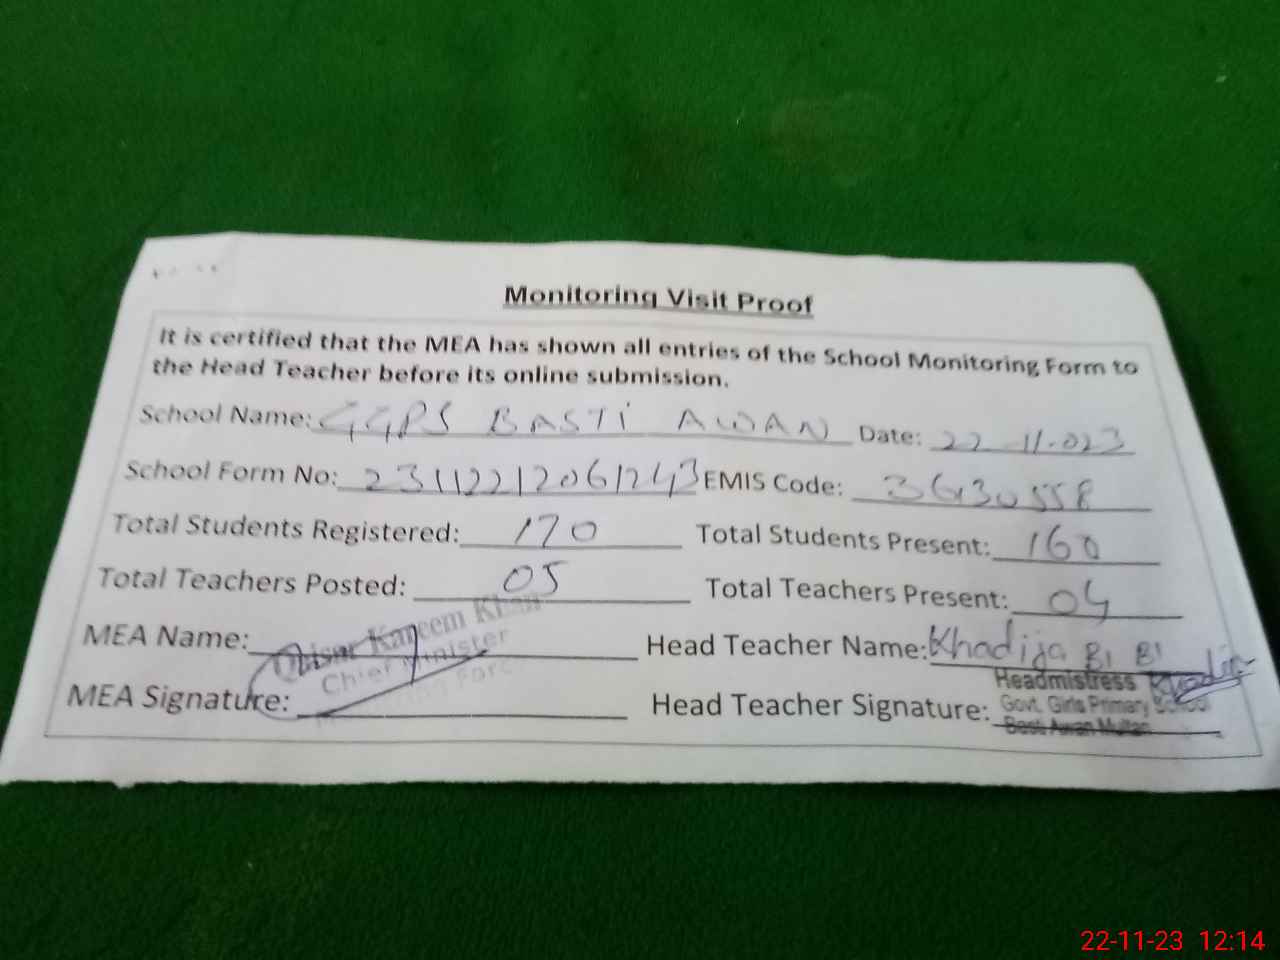 Monitoring Visit Proof
It is certified that the MEA has shown all entries of the School Monitoring Form to
the Head Teacher before its online submission.
School Name: GGPS BASTI AWAN Date: 22-11-023
School Form No: 23112212061243 EMIS Code: 36130558
Total Students Registered: 170 Total Students Present: 160
Total Teachers Posted: 05 Total Teachers Present: 04
MEA Name: Kareem Khan Head Teacher Name: Khadija BI BI
Chief Minister
Headmistress
MEA Signature: Head Teacher Signature: Govt. Girls Primary School
Basti Awan Multan
22-11-23 12:14